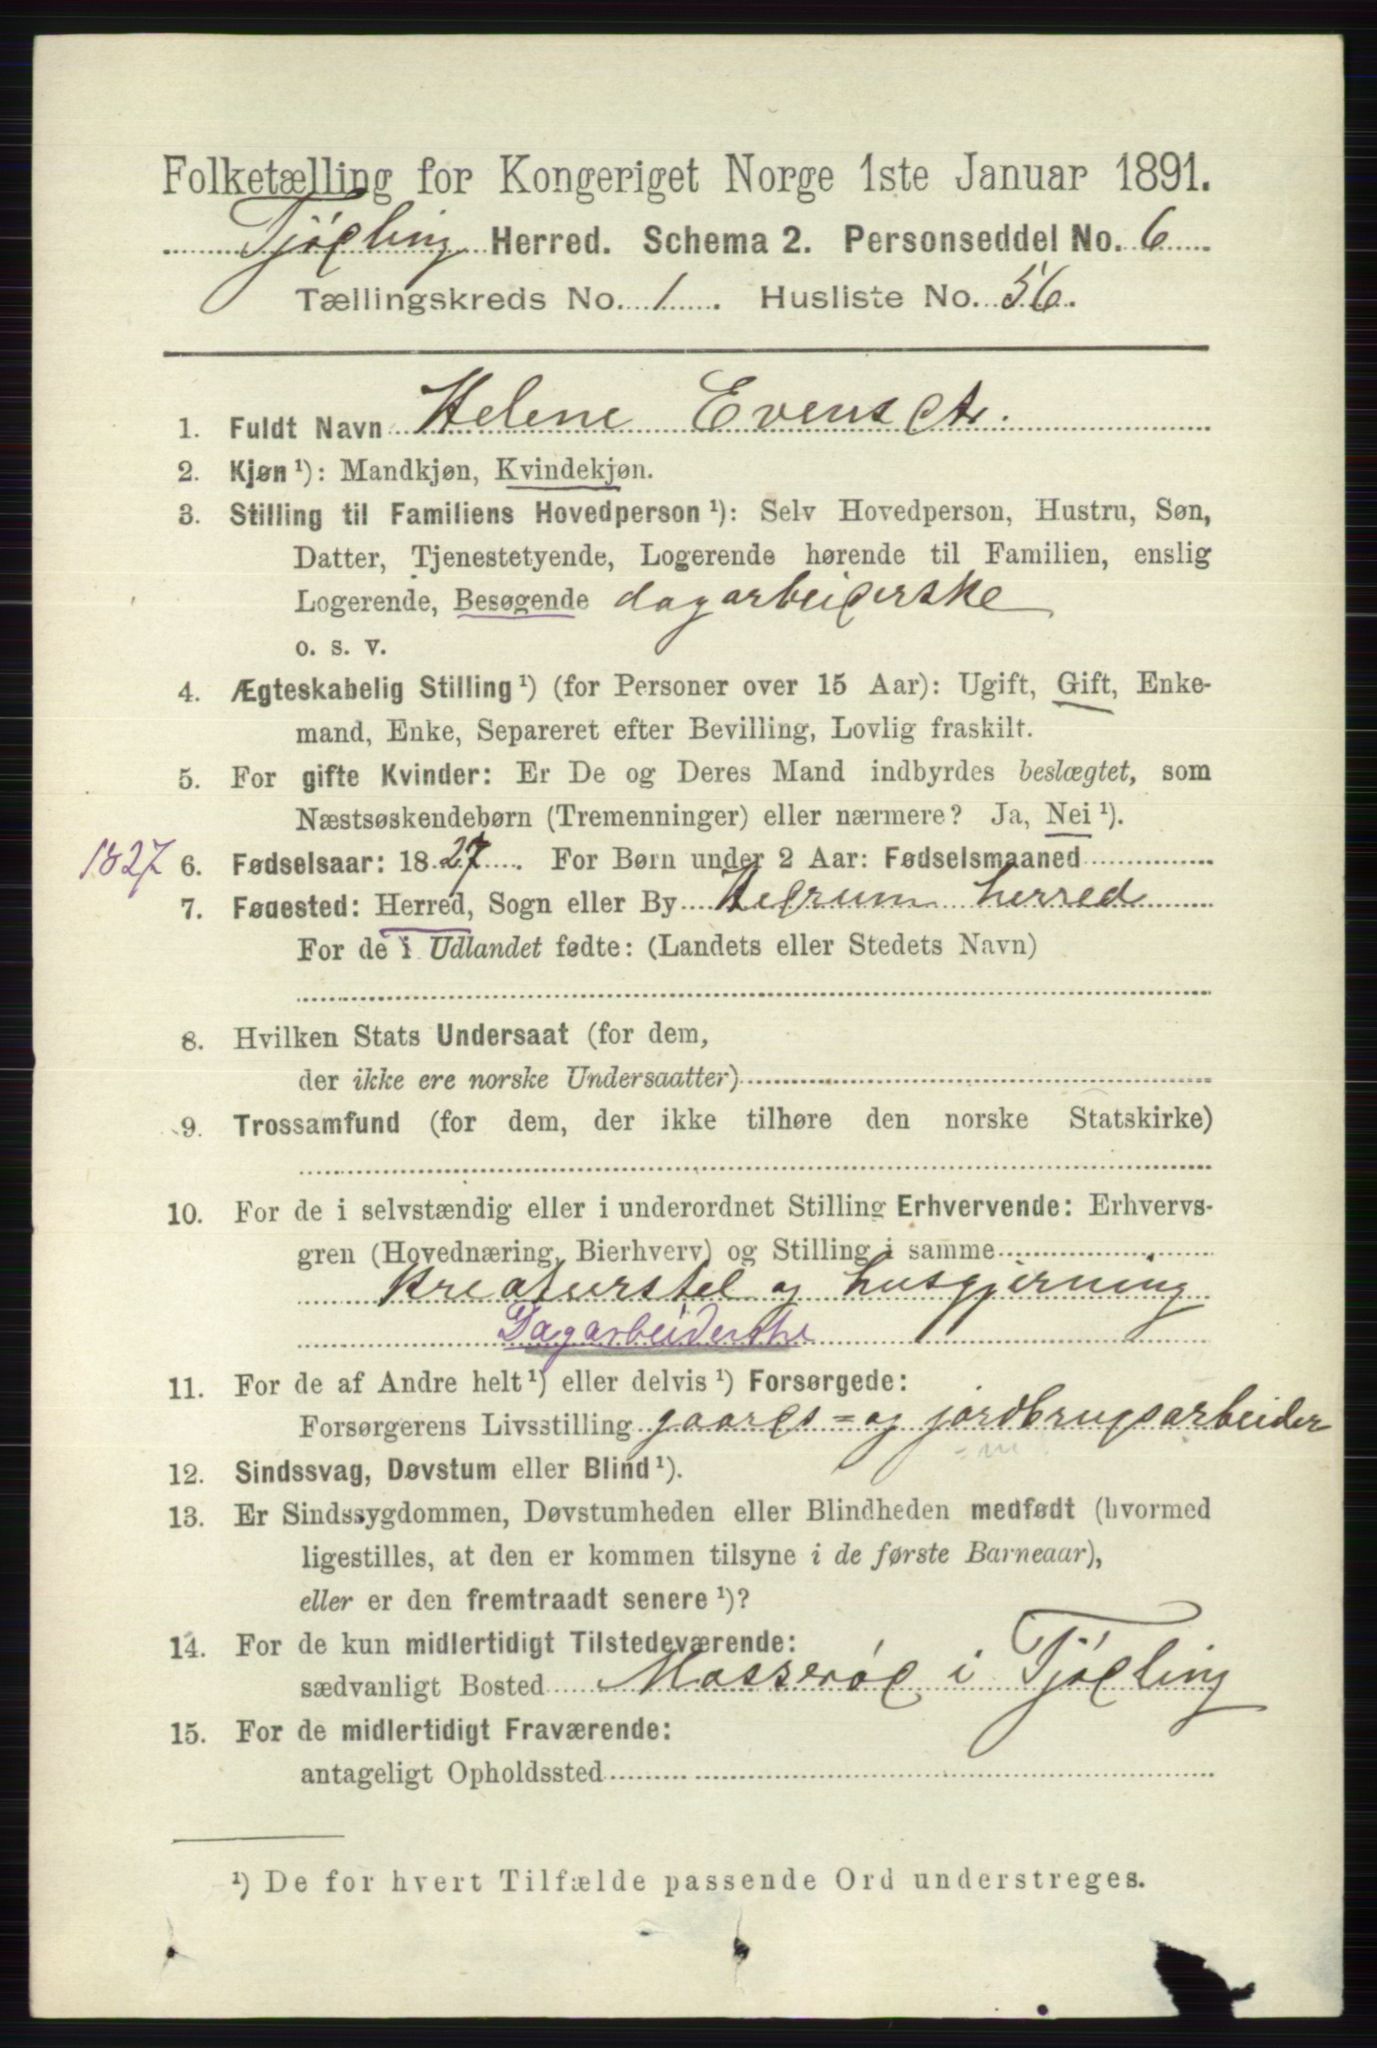 Folketælling for Kongeriget Norge 1ste Januar 1891.
Tjødling Herred. Schema 2. Personseddel No. 6
Tællingskreds No. 1. Husliste No. 56.
1. Fuldt Navn Helene Evensdtr.
2. Kjøn ¹): Mandkjøn, Kvindekjøn.
3. Stilling til Familiens Hovedperson ¹): Selv Hovedperson, Hustru, Søn,
Datter, Tjenestetyende, Logerende hørende til Familien, enslig
Logerende, Besøgende dagarbeiderske
o. s. v.
4. Ægteskabelig Stilling ¹) (for Personer over 15 Aar): Ugift, Gift, Enke-
mand, Enke, Separeret efter Bevilling, Lovlig fraskilt.
5. For gifte Kvinder: Er De og Deres Mand indbyrdes beslægtet, som
Næstsøskendebørn (Tremenninger) eller nærmere? Ja, Nei ¹).
1827 6. Fødselsaar: 1827. For Børn under 2 Aar: Fødselsmaaned
7. Fødested: Herred, Sogn eller By Hedrum herred
For de i Udlandet fødte: (Landets eller Stedets Navn)
8. Hvilken Stats Undersaat (for dem,
der ikke ere norske Undersaatter)
9. Trossamfund (for dem, der ikke tilhøre den norske Statskirke)
10. For de i selvstændig eller i underordnet Stilling Erhvervende: Erhvervs-
gren (Hovednæring, Bierhverv) og Stilling i samme
Kreaturstel og husgjerning
Dagarbeiderske
11. For de af Andre helt ¹) eller delvis ¹) Forsørgede:
Forsørgerens Livsstilling gaards= og jordbrugsarbeider
12. Sindssvag, Døvstum eller Blind ¹).
13. Er Sindssygdommen, Døvstumheden eller Blindheden medfødt (hvormed
ligestilles, at den er kommen tilsyne i de første Barneaar),
eller er den fremtraadt senere ¹)?
14. For de kun midlertidigt Tilstedeværende:
sædvanligt Bosted Masserød i Tjødling
15. For de midlertidigt Fraværende:
antageligt Opholdssted
¹) De for hvert Tilfælde passende Ord understreges.